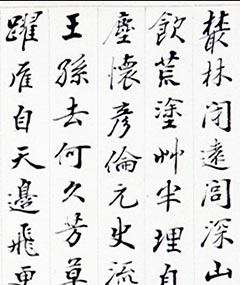 叢林閉遠閭深山
飲荒塗艸半理自
塵懷彥倫元史流
王孫去何久芳草
躍雁自天邊飛更